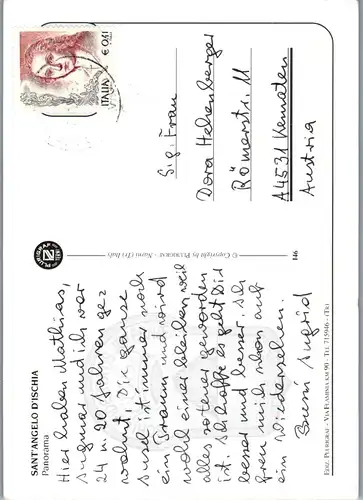 SANT'ANGELO D'ISCHIA
Panorama
Hier haben Mathias,
Sugmar und ich vor
24 u. 20 Jahren ge=
wohnt. Die ganze
Insel ist immer noch
ein Traum und wird
wohl einer bleiben, weil
alles autofrei geworden
ist. Ich hoffe es geht Dir
besser und besser. Ich
freu mich schon auf
ein Wiedersehen.
Bussi Sugrid
PLURIGRAF
© Copyright by PLURIGRAF - Narni (Tr) Italy
146
EDIZ. PLURIGRAF - VIA FLAMINIA KM 90 - TEL. 715946 - (TR)
ITALIA
€ 0,41
Sig. Frau
Dora Hehenberger
Römerstr. 11
A4531 Kematen
Austria